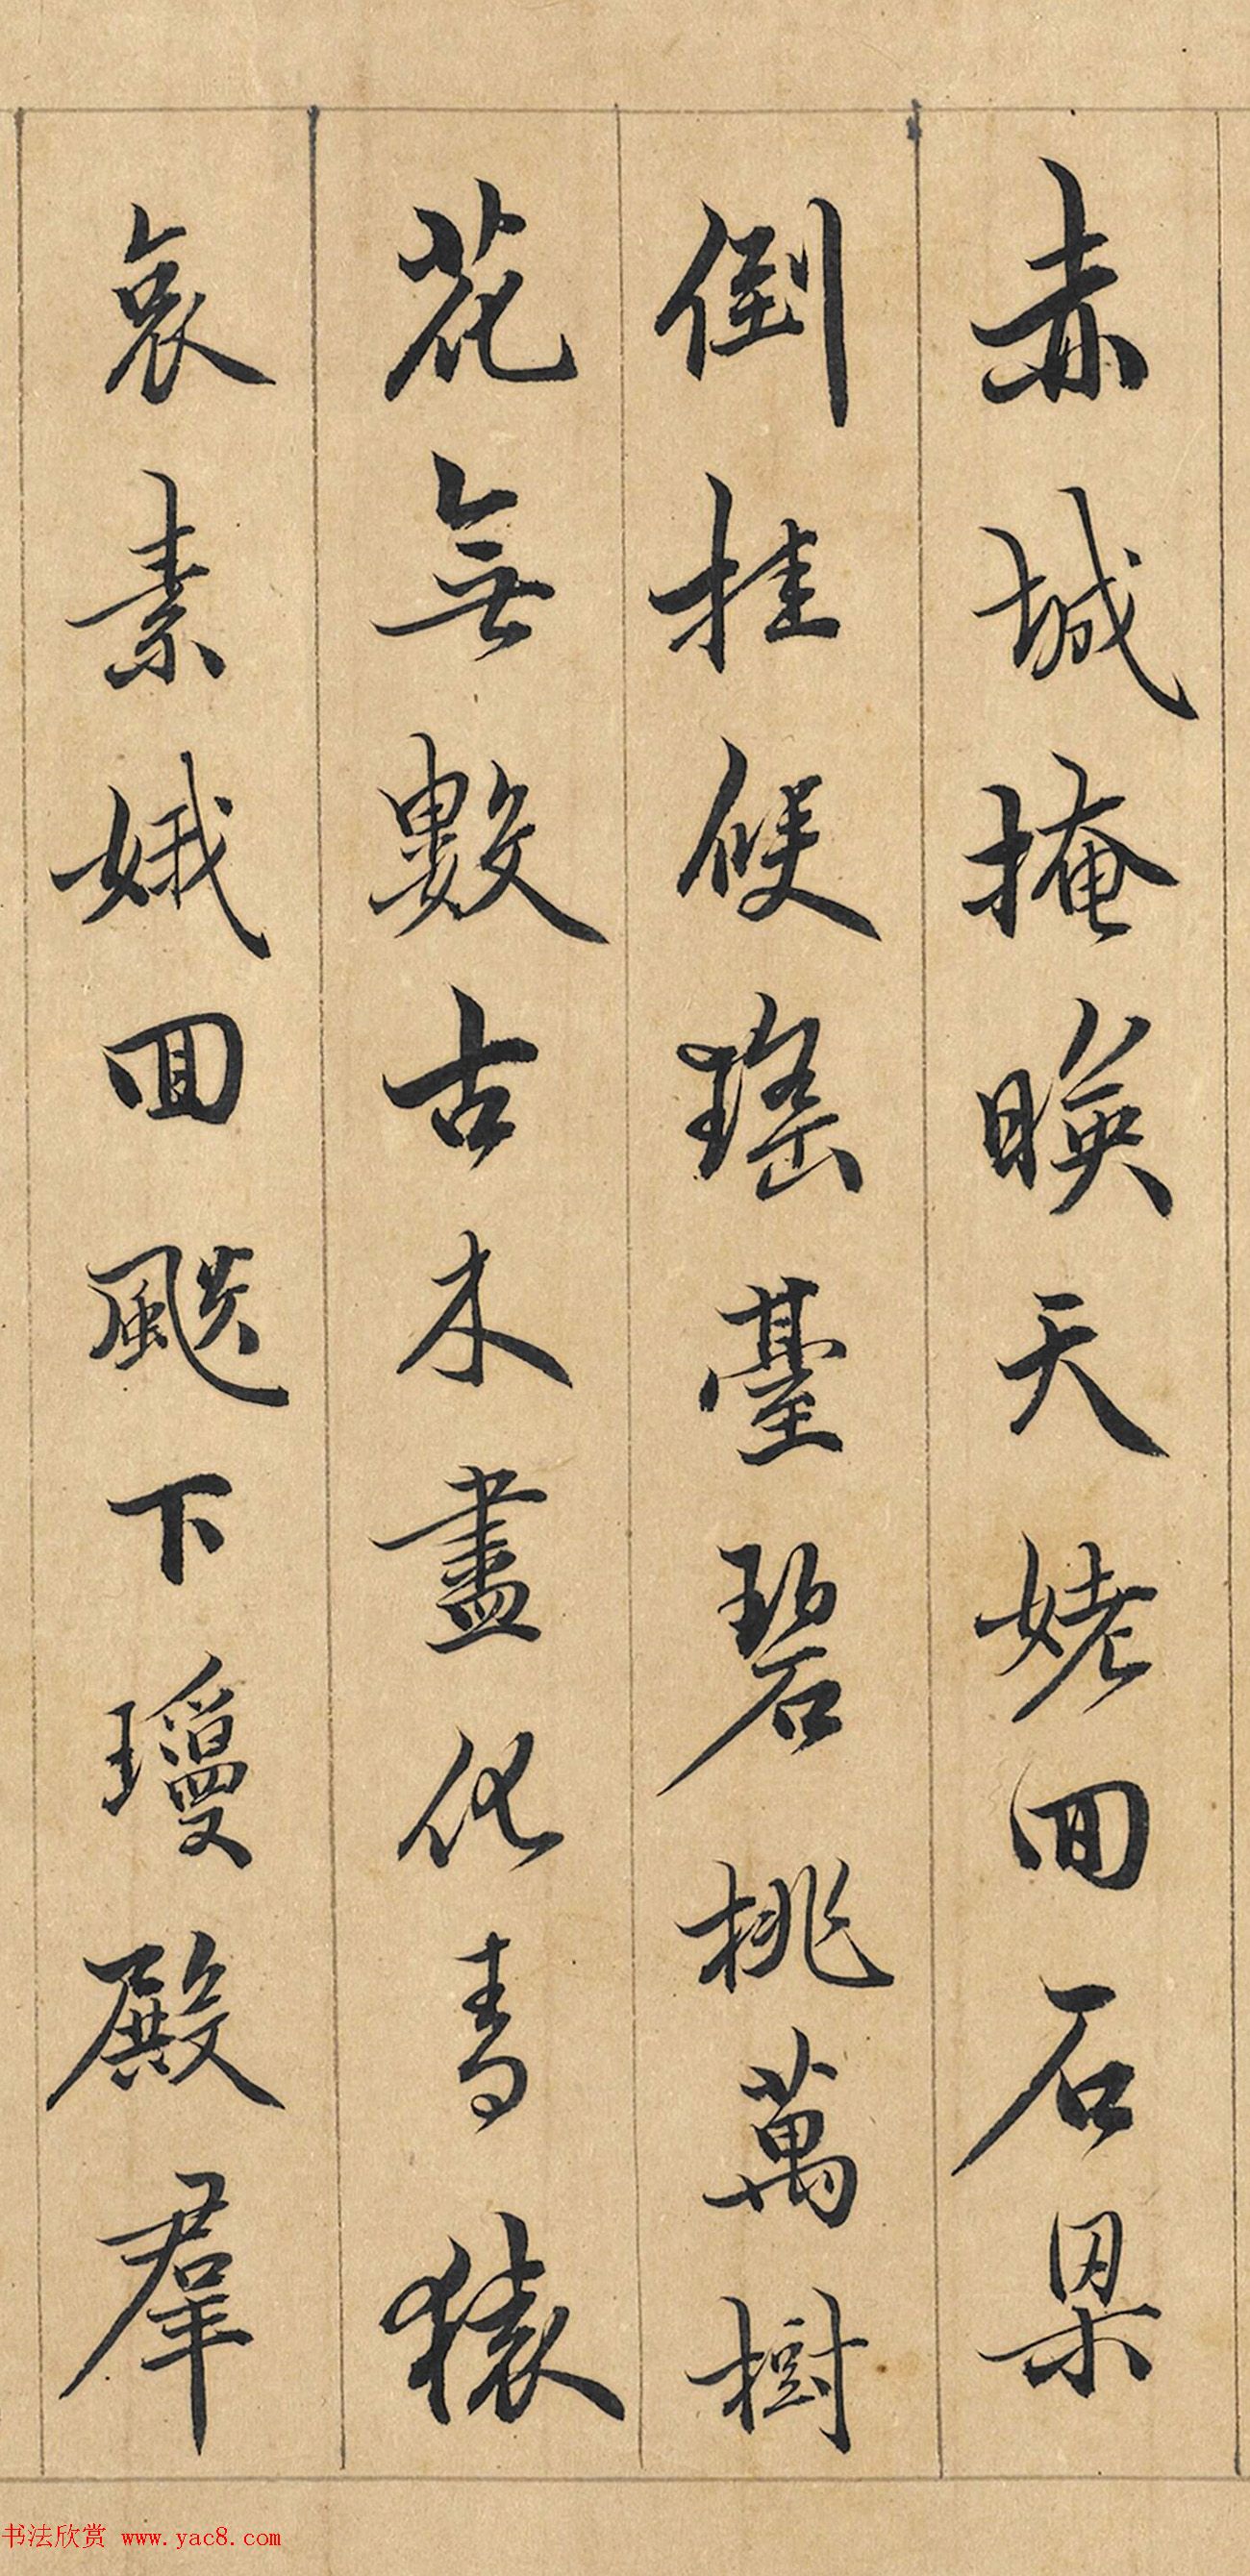 赤城掩暎天姥囬石果
倒挂候瑤臺碧桃萬樹
花無數古木盡化青猿
哀素娥囬飈下瓊殿羣
书法欣赏 www.yac8.com